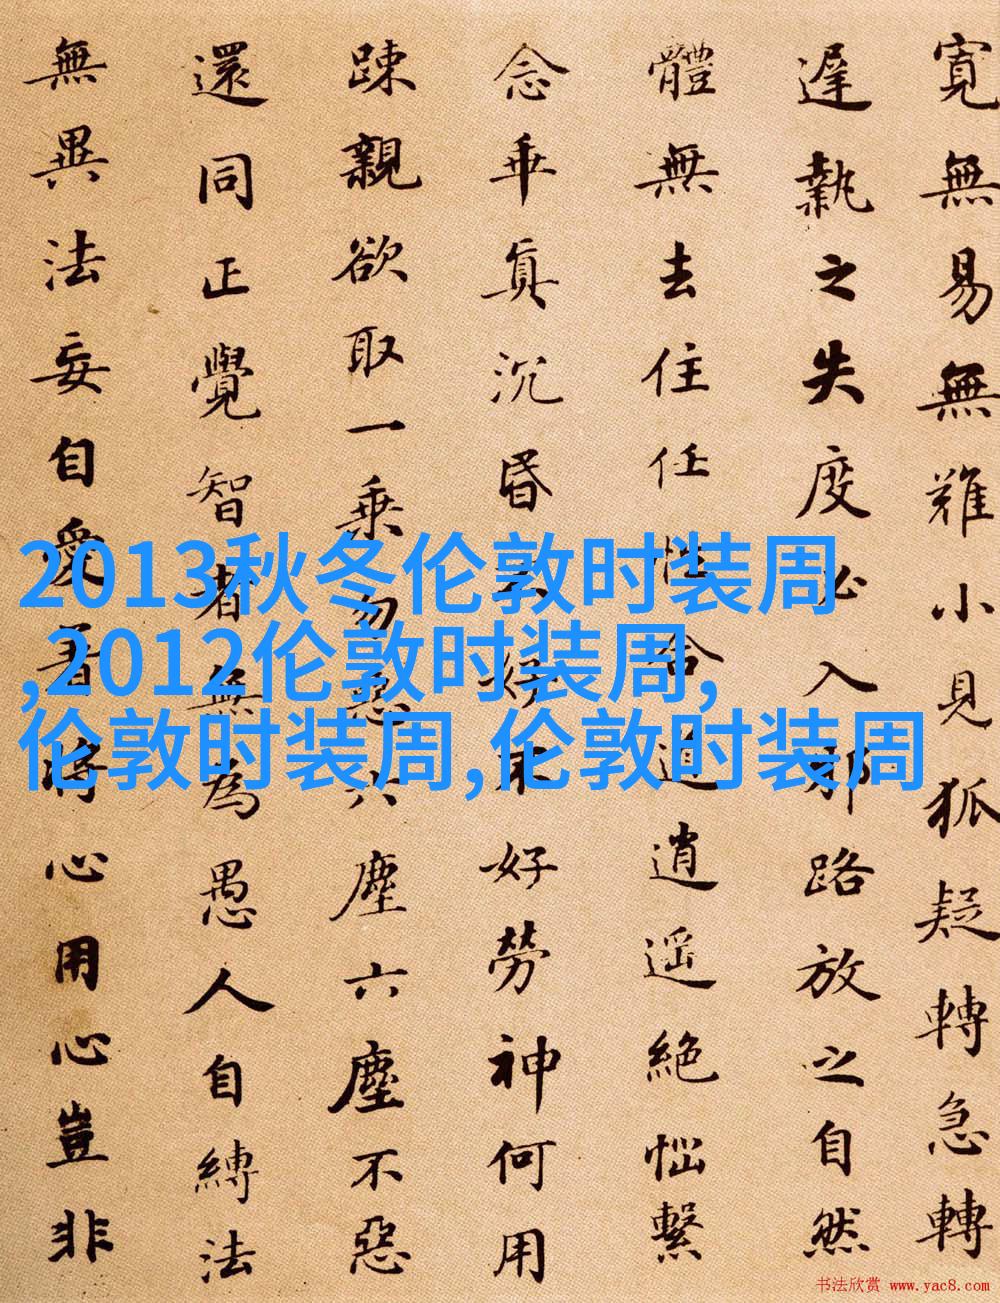 寬無易無難小見狐疑轉急轉
遲執之失度必入邪路放之自然
體無去住任性合道逍遥絶惱繫
念乖真沉昏不好不好勞神何用
踈親欲取一乘勿惡六塵六塵不惡
還同正覺智者無為愚人自縛法
無異法妄自愛著將心用心豈非
2013秋冬伦敦时装周
,2012伦敦时装周,
伦敦时装周,伦敦时装周
书法欣赏 www.yac8.com